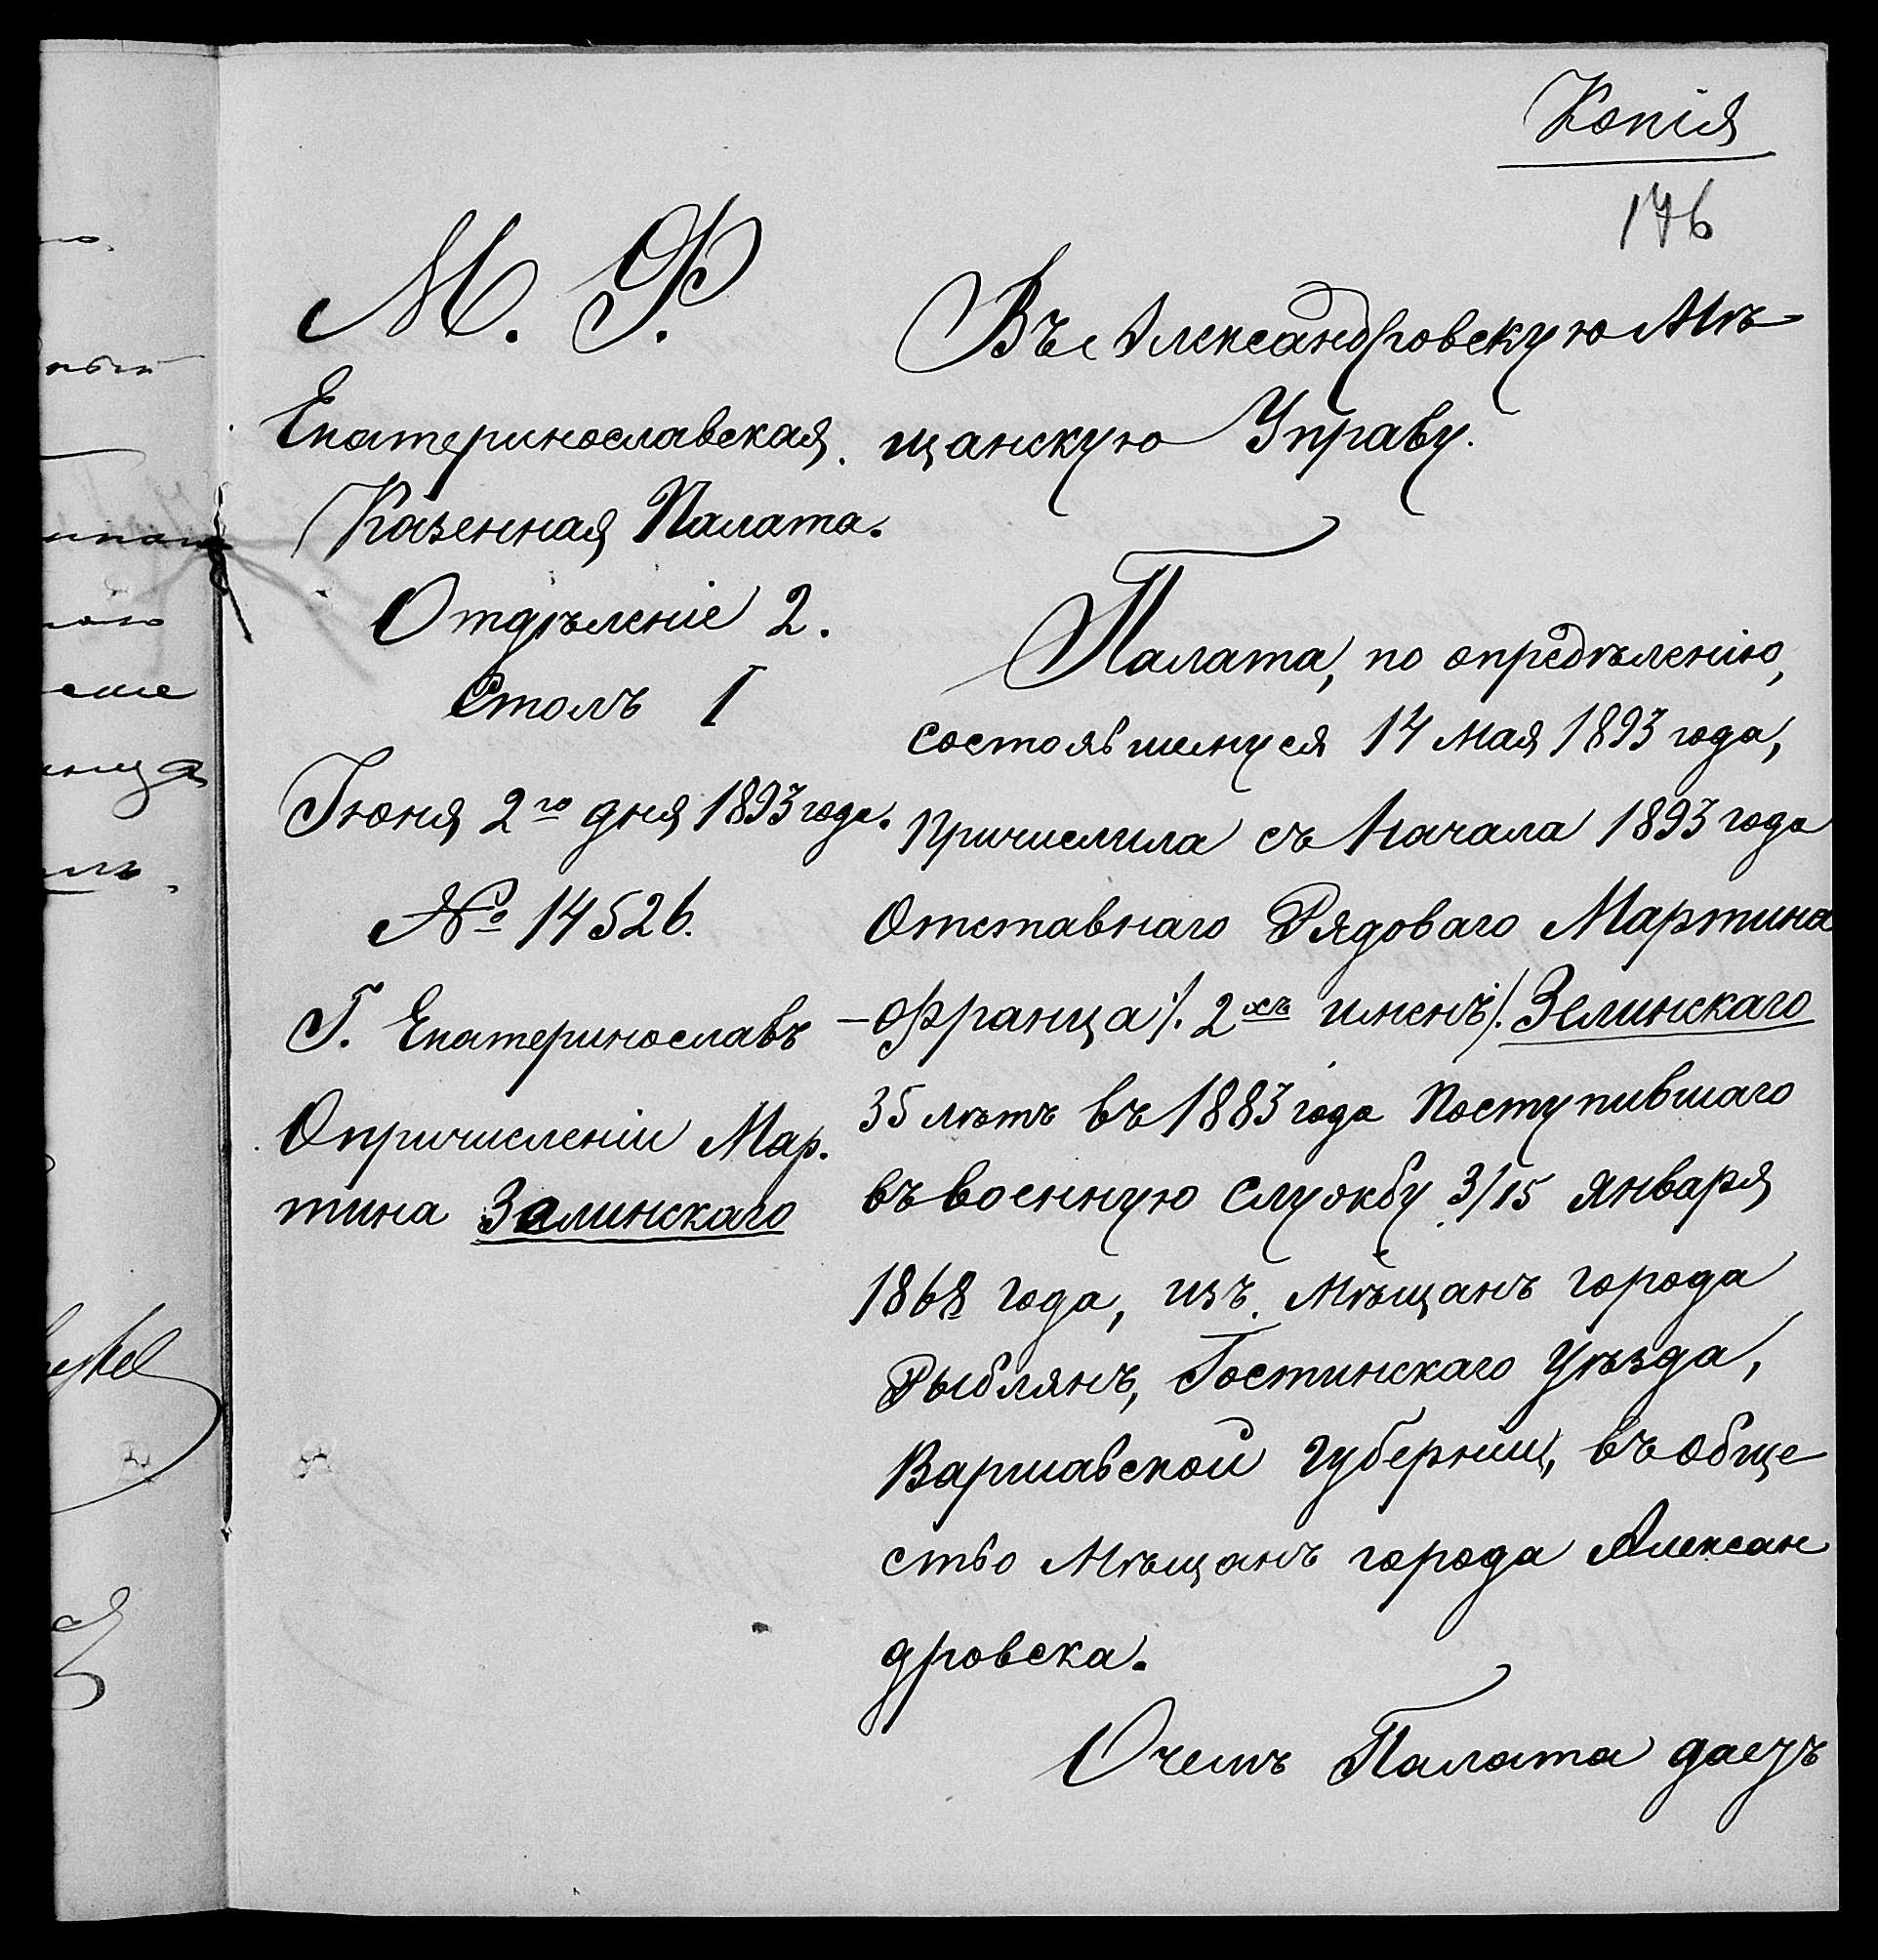 Копія
176
М. Ф.
Екатеринославская
Казенная Палата.
Отдѣленіе 2.
Столъ I
Іюня 2го дня 1893 года.
№ 14526.
Г. Екатеринославъ
О причисленіи Мар.
тина Залинскаго
Въ Александровскую Мѣ-
щанскую Управу.
Палата, по опредѣленію,
состоявшемуся 14 мая 1893 года,
причислила съ начала 1893 года
Отставнаго Рядоваго Мартина
-Франца /. 2хъ именъ /. Зелинскаго
35 лѣтъ въ 1883 года поступившаго
въ военную службу 3/15 января
1868 года, изъ мѣщанъ города
Рыблянъ, Гостинскаго уѣзда,
Варшавской губерніи, въ обще
ство мѣщанъ города Алексан
дровска.
О чемъ Палата даетъ